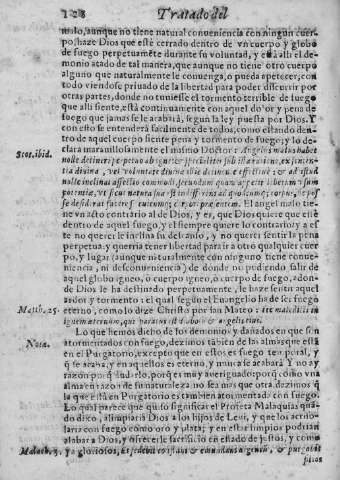 128 Tratado del
malo, aunque no tiene natural conueniencia con ningun cuer-
po, haze Dios que esté cerrado dentro de vn cuerpo y globo
de fuego perpetuamẽte durante su voluntad, y està alli el de-
monio atado de tal manera, que aunque no tiene otro cuerpo
alguno que naturalmente le conuenga, o pueda apetecer, con
todo viendose priuado de la libertad para poder discurrir por
otras partes, donde no tuuiesse el tormento terrible de fuego
que alli siente, està continuamente con aquel dolor y pena de
fuego que jamas se le acabarà, segun la ley puesta por Dios. Y
con esto se entenderà facilmente de todos, como estando den-
tro de aquel cuerpo siente pena y tormento de fuego; y lo de-
clara marauillosamente el mismo Doctor: Angelus malus habet
Scot. ibid. nolle detineri perpetuo ab igne
diuina, vel voluntate diuina sibi detineri
nolle
se El angel malo tie-
ne vn acto contrario al de Dios, y es, que Dios quiere que esté
dentro de aquel fuego, y el siempre quiere lo contrario, y a es-
te no querer le inclina su dếl daño, y no querer sentir la pena
perpetua, y querria tener libertad para ir a otro qualquier cuer-
po, y lugar (aunque naturalmente con ninguno tiene conue-
niencia, ni desconueniencia) de donde no pudiendo salir de
aquel globo igneo, o cuerpo igneo, ò cuerpo de fuego, adon-
de Dios le ha destinado perpetuamente, le haze sentir aquel
ardor y tormento: el qual segun el Euangelio ha de ser fuego
Matth. 25. eterno, como lo dize Christo por san Mateo: Ite maledicti in
ignem aeternum, qui paratus est diabolo & angelis eius.
Lo que hemos dicho de los demonios y dañados en que son
Nota. atormentados con fuego, dezimos tãbien de las almas que està
en el Purgatorio, excepto que en estos es fuego temporal, y
q̃ se acaba, y en aquellos es eterno, y nunca se acabarà Y no ay
razon porq̃ dudarlo, poiq̃ es muy aueriguado: porq̃ como vna
alma en razon de su naturaleza no sea mas que otra, dezimos q̃
la que està en Purgatorio es tambien atormentada con fuego.
Lo qual parece que quiso significar el Profeta Malaquias quã-
do dixo, alimpiarà Dios a los hijos de Leui, y que los acriso-
larìa con fuego como oro y plata; y en estar limpios podrian
alabar a Dios, y ofrecerle sacrificio en estado de justos, y como
Malach. 3. ya gloriosos, Et sedebit conflans & emundans argentum, & purgabit
filios